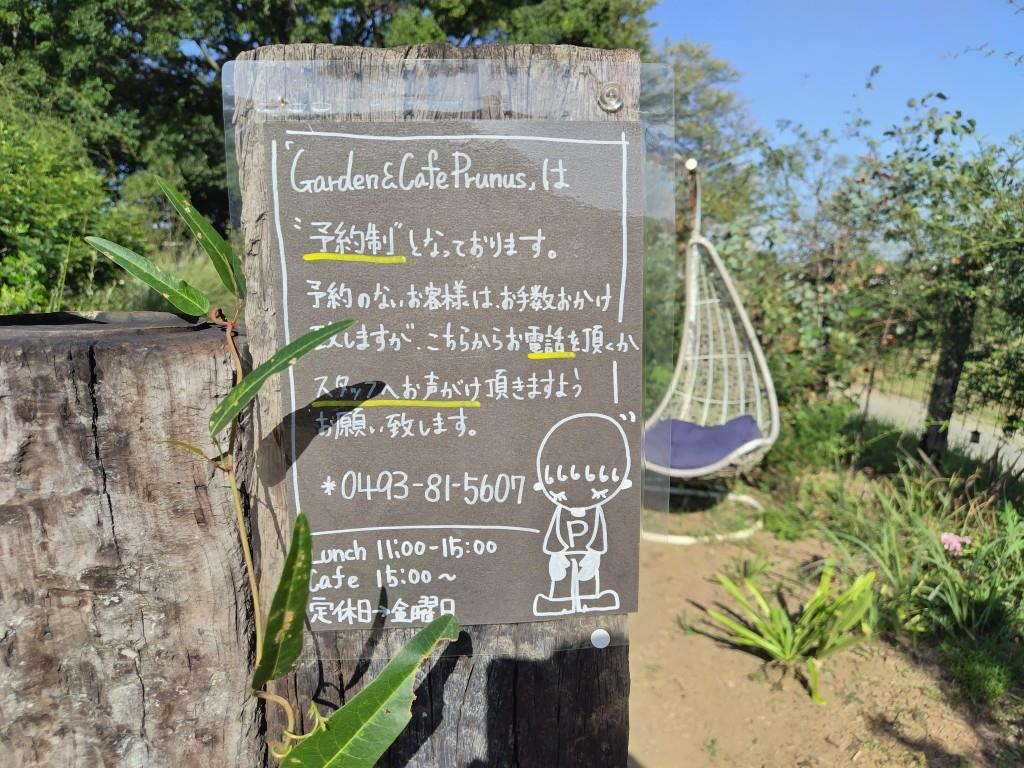 「Garden&CafePrunus」は
"予約制"となっております。
予約のないお客様は、お手数おかけ
致しますが、こちらからお電話を頂くか
スタッフへお声がけ頂きますよう
お願い致します。
*0493-81-5607
P
Lunch 11:00-15:00
Cafe 15:00〜
定休日→金曜日